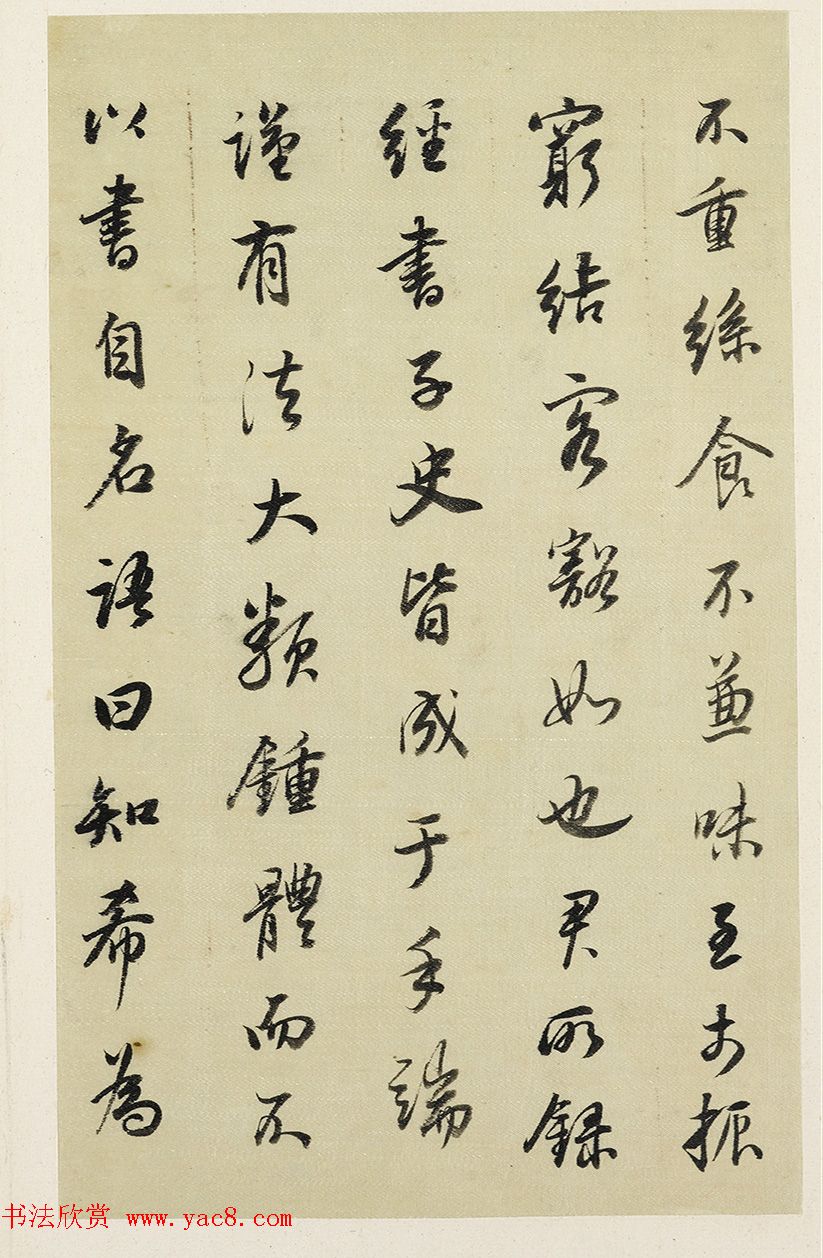 不重絲食不兼味至於振
窮結客豁如也君所錄
經書子史皆成于手端
謹有法大類鍾體而不
以書自名語曰知希為
书法欣赏 www.yac8.com